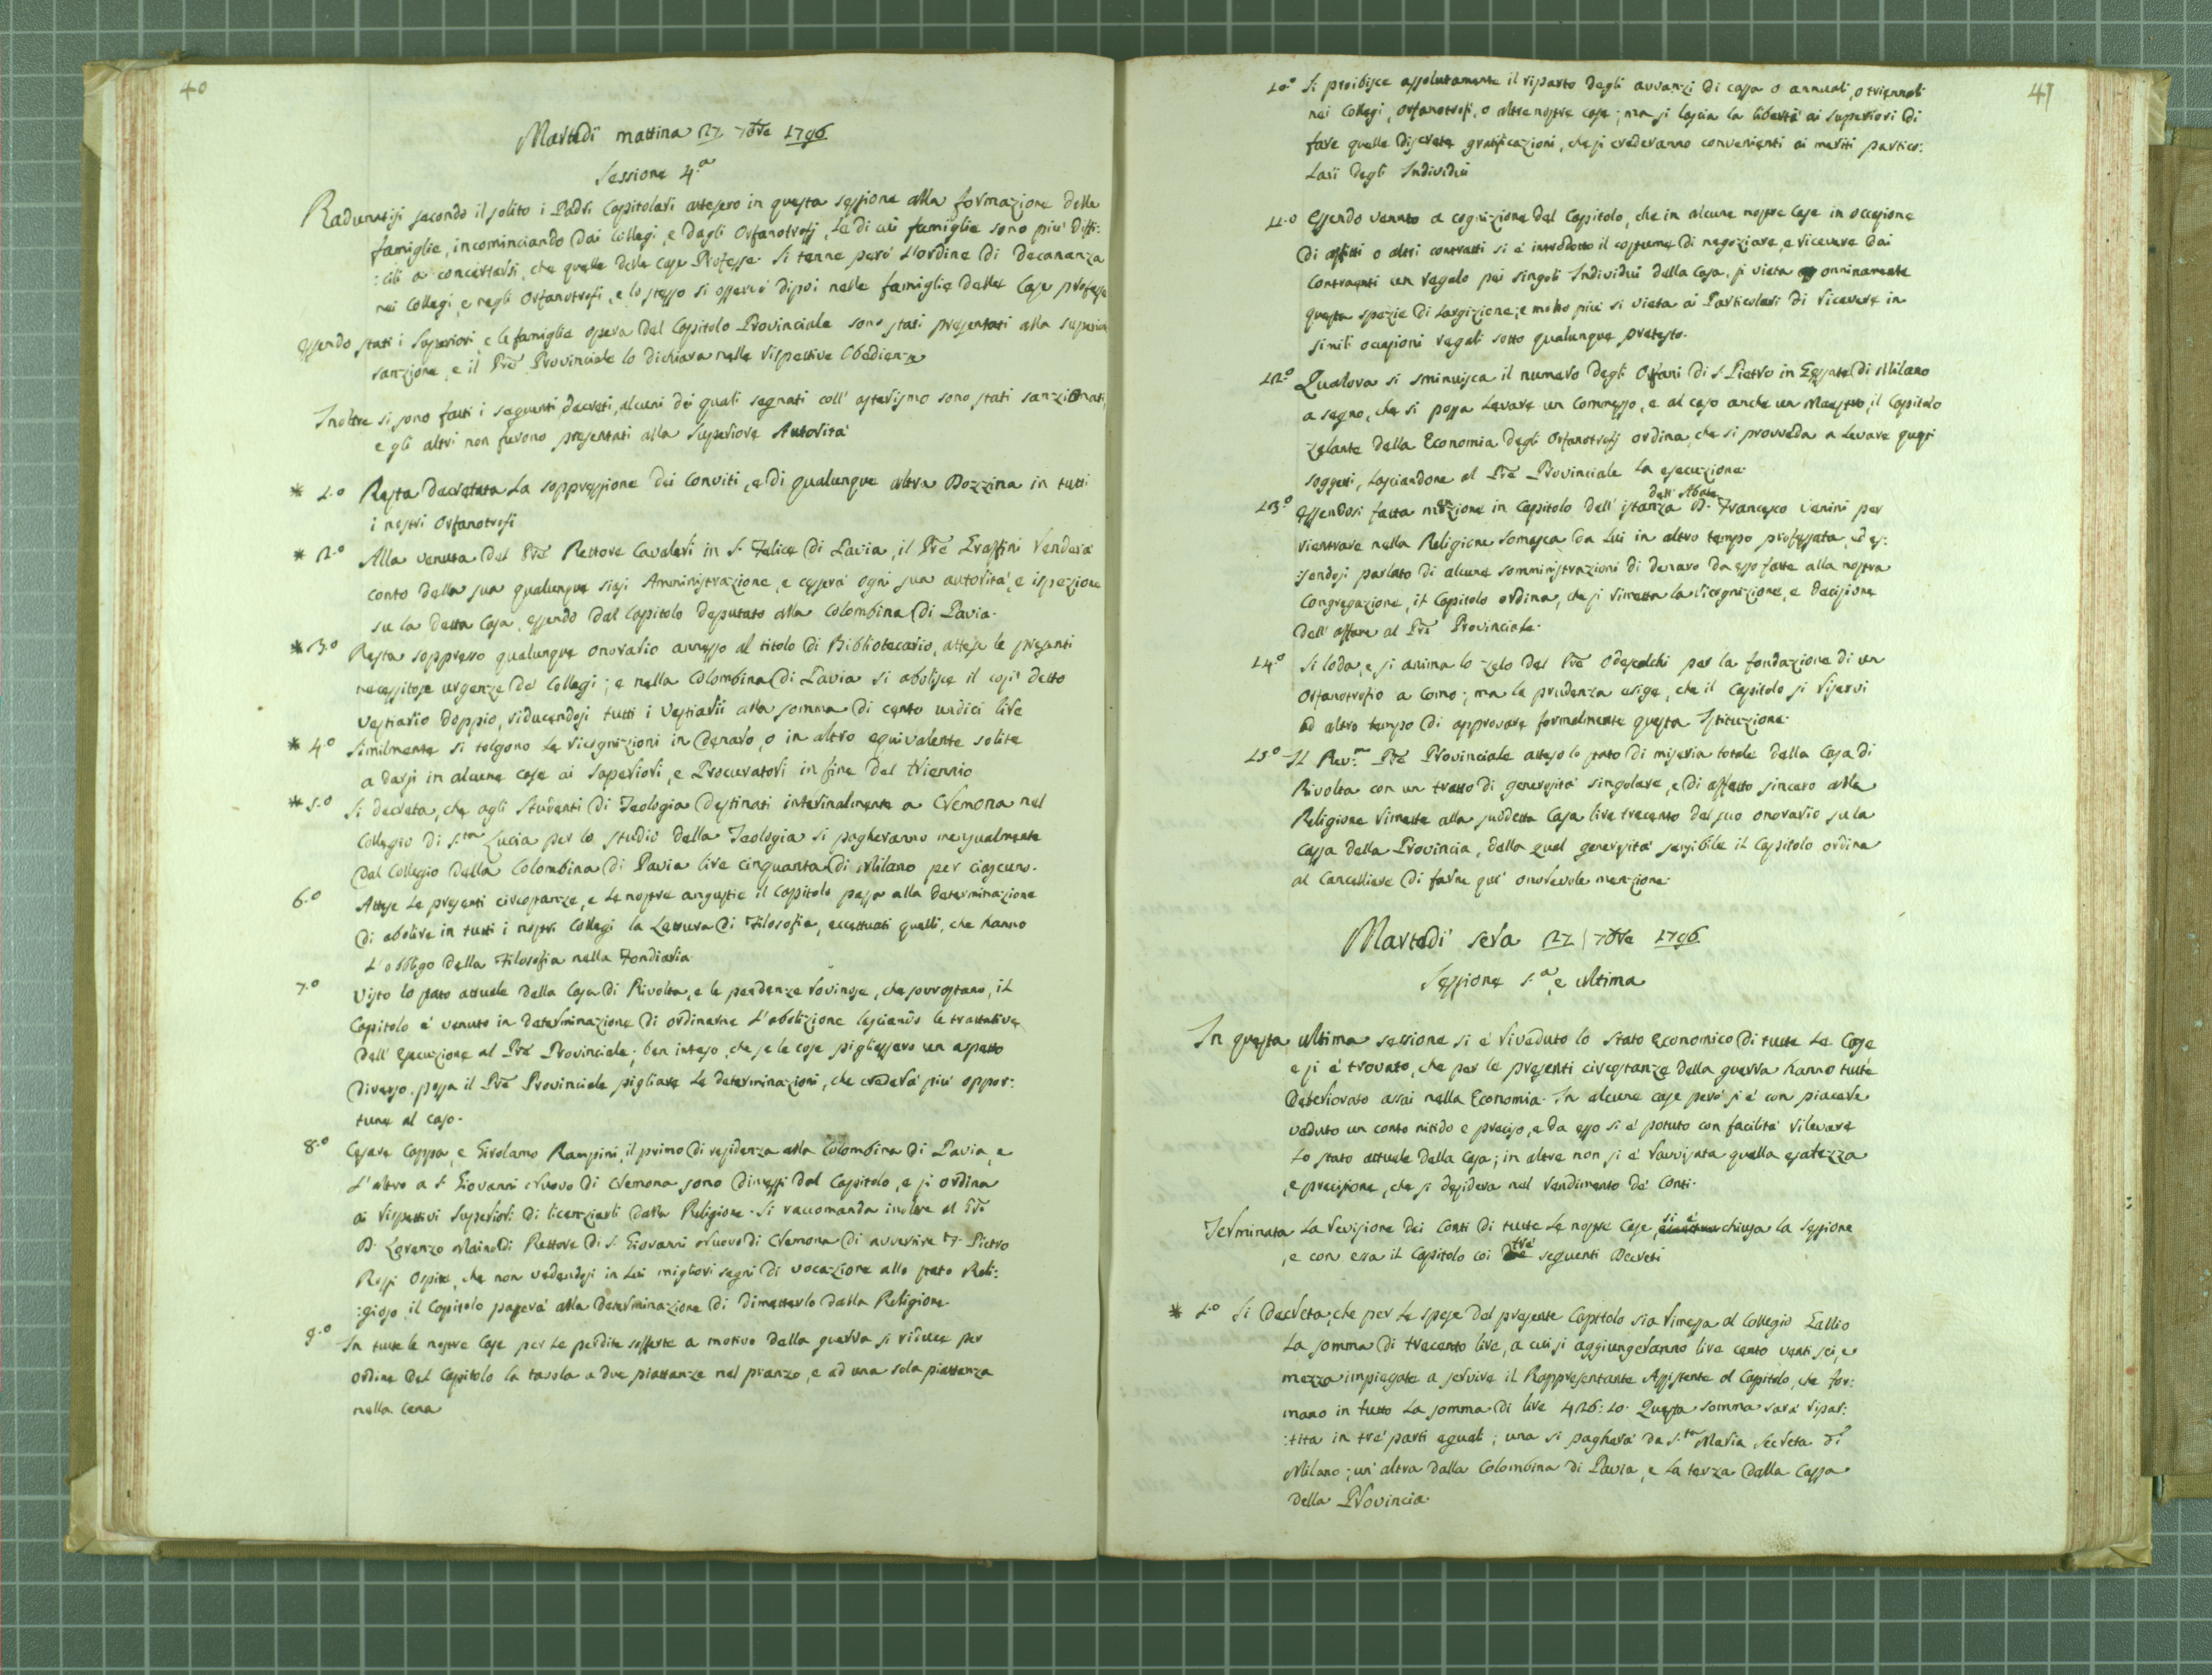 40
Martedì mattina 27 7bre 1796
Sessione 4.a
Radunatisi secondo il solito i Padri Capitolari attesero in questa sessione alla formazione delle
famiglie, incominciando dai Collegi, e dagli Orfanotrofj, le di cui famiglie sono più diffi:
:cili a concertarsi, che quelle delle Case Professe. Si tenne però l'ordine di Decananza
nei Collegi, e negli Orfanotrofi, e lo stesso si osservò dipoi nelle famiglie delle Case professe
Essendo stati i Superiori, e le famiglie opera del Capitolo Provinciale sono stati presentati alla superior
sanzione, e il Pre Provinciale lo dichiara nelle rispettive Obedienze
Inoltre si sono fatti i seguenti decreti, alcuni dei quali segnati coll' asterismo sono stati sanzionati,
e gli altri non furono presentati alla Superiore Autorità
* 1.o Resta decretata la soppressione dei Conviti, e di qualunque altra Dozzina in tutti
i nostri Orfanotrofi
* 2.o Alla venuta del Pre Rettore Cavaleri in S. Felice di Pavia, il Pre Graffini renderà
conto della sua qualunque siasi Amministrazione, e cesserà ogni sua autorità, e ispezione
su la detta Casa, essendo dal Capitolo deputato alla Colombina di Pavia.
* 3.o Resta soppresso qualunque onorario annesso al titolo di Bibliotecario, attese le presenti
necessitose urgenze de' Collegi; e nella Colombina di Pavia si abolisce il così detto
Vestiario doppio, riducendosi tutti i Vestiarii alla somma di cento undici lire
* 4.o Similmente si tolgono le ricognizioni in denaro, o in altro equivalente solite
a darsi in alcune case ai Superiori, e Procuratori in fine del triennio
* 5.o Si decreta, che agli Studenti di Teologia destinati interinalmente a Cremona nel
Collegio di S.ta Lucia per lo studio della Teologia si pagheranno mensualmente
dal Collegio della Colombina di Pavia lire cinquanta di Milano per ciascuno.
6.o Attese le presenti circostanze, e le nostre angustie il Capitolo passa alla determinazione
di abolire in tutti i nostri Collegi la Lettura di Filosofia, eccettuati quelli, che hanno
l'obbligo della Filosofia nella Fondiaria
7.o Visto lo stato attuale della Casa di Rivolta, e le pendenze rovinose, che sovrastano, il
Capitolo è venuto in determinazione di ordinarne l'abolizione lasciando le trattative
dell' esecuzione al Pre Provinciale; ben inteso, che se le cose pigliassero un aspetto
diverso, possa il Pre Provinciale pigliare le determinazioni, che crederà più oppor:
tune al caso.
8.o Cesare Coppa, e Girolamo Rampini, il primo di residenza alla Colombina di Pavia, e
l'altro a S. Giovanni Nuovo di Cremona sono dimessi dal Capitolo, e si ordina
ai rispettivi Superiori di licenziarli dalla Religione. Si raccomanda inoltre al Pre
D. Lorenzo Mainoldi Rettore di S. Giovanni Nuovo di Cremona di avvertire Pietro
Rossi Ospite, che non vedendosi in lui migliori segni di vocazione allo stato Reli:
:gioso, il Capitolo passerà alla determinazione di dimetterlo dalla Religione.
9.o In tutte le nostre Case per le perdite sofferte a motivo della guerra si riduce per
ordine del Capitolo la tavola a due piattanze nel pranzo, e ad una sola piattanza
nella cena
41
10.o Si proibisce assolutamente il riparto degli avvanzi di cassa o annuali, o triennali
nei Collegi, Orfanotrofi, o altre nostre case; ma si lascia la libertà ai Superiori di
fare quelle discrete gratificazioni, che si crederanno convenienti ai meriti partico:
lari degli Individui
11.o Essendo venuto a cognizione del Capitolo, che in alcune nostre Case in occasione
di affitti o altri contratti si è introdotto il costume di negoziare, e ricevere dai
Contraenti un regalo pei singoli Individui della Casa, si vieta onninamente
questa spezie di largizione; e molto più si vieta ai Particolari di ricevere in
simili occasioni regali sotto qualunque pretesto.
12.o Qualora si sminuisca il numero degli Orfani di S. Pietro in Gessate di Milano
a segno, che si possa levare un Commesso, e al caso anche un Maestro, il Capitolo
zelante della Economia degli Orfanotrofj ordina, che si provveda a levare questi
soggetti, lasciandone al Pre Provinciale la esecuzione.
13.o Essendosi fatta menzione in Capitolo dell' istanza dell' Abate D. Francesco Venini per
rientrare nella Religione Somasca da lui in altro tempo professata, ed es:
:sendosi parlato di alcune somministrazioni di denaro da esso fatte alla nostra
Congregazione, il Capitolo ordina, che si rimetta la ricognizione, e decisione
dell' affare al Pre Provinciale.
14.o Si loda, e si anima lo zelo del Pre Odescalchi per la fondazione di un
Orfanotrofio a Como; ma la prudenza esige, che il Capitolo si riservi
ad altro tempo di approvare formalmente questa Istituzione.
15.o Il Rev.mo Pre Provinciale atteso lo stato di miseria totale della Casa di
Rivolta con un tratto di generosità singolare, e di affetto sincero alla
Religione rimette alla suddetta Casa lire trecento del suo onorario su la
Cassa della Provincia, della qual generosità sensibile il Capitolo ordina
al Cancelliere di farne qui onorevole menzione.
Martedì sera 27 7bre 1796
Sessione 5.a, e ultima
In questa ultima sessione si è riveduto lo Stato Economico di tutte le Case
e si è trovato, che per le presenti circostanze della guerra hanno tutte
deteriorato assai nella Economia. In alcune case però si è con piacere
veduto un conto nitido e preciso, e da esso si è potuto con facilità rilevare
lo stato attuale della Casa; in altre non si è ravvisata quella esatezza
, e precisione, che si desidera nel rendimento de' Conti.
Terminata la revisione dei Conti di tutte le nostre Case, si è chiusa la sessione
, e con essa il Capitolo coi tre seguenti Decreti
* 1.o Si decreta, che per le spese del presente Capitolo sia rimessa al Collegio Gallio
la somma di trecento lire, a cui si aggiungeranno lire cento venti sei, e
mezza impiegate a servire il Rappresentante Assistente al Capitolo, che for:
mano in tutto la somma di lire 426:10. Questa somma sarà ripar:
:tita in tre parti eguali; una si pagherà da S.ta Maria Secreta di
Milano; un' altra dalla Colombina di Pavia, e la terza dalla Cassa
della Provincia.